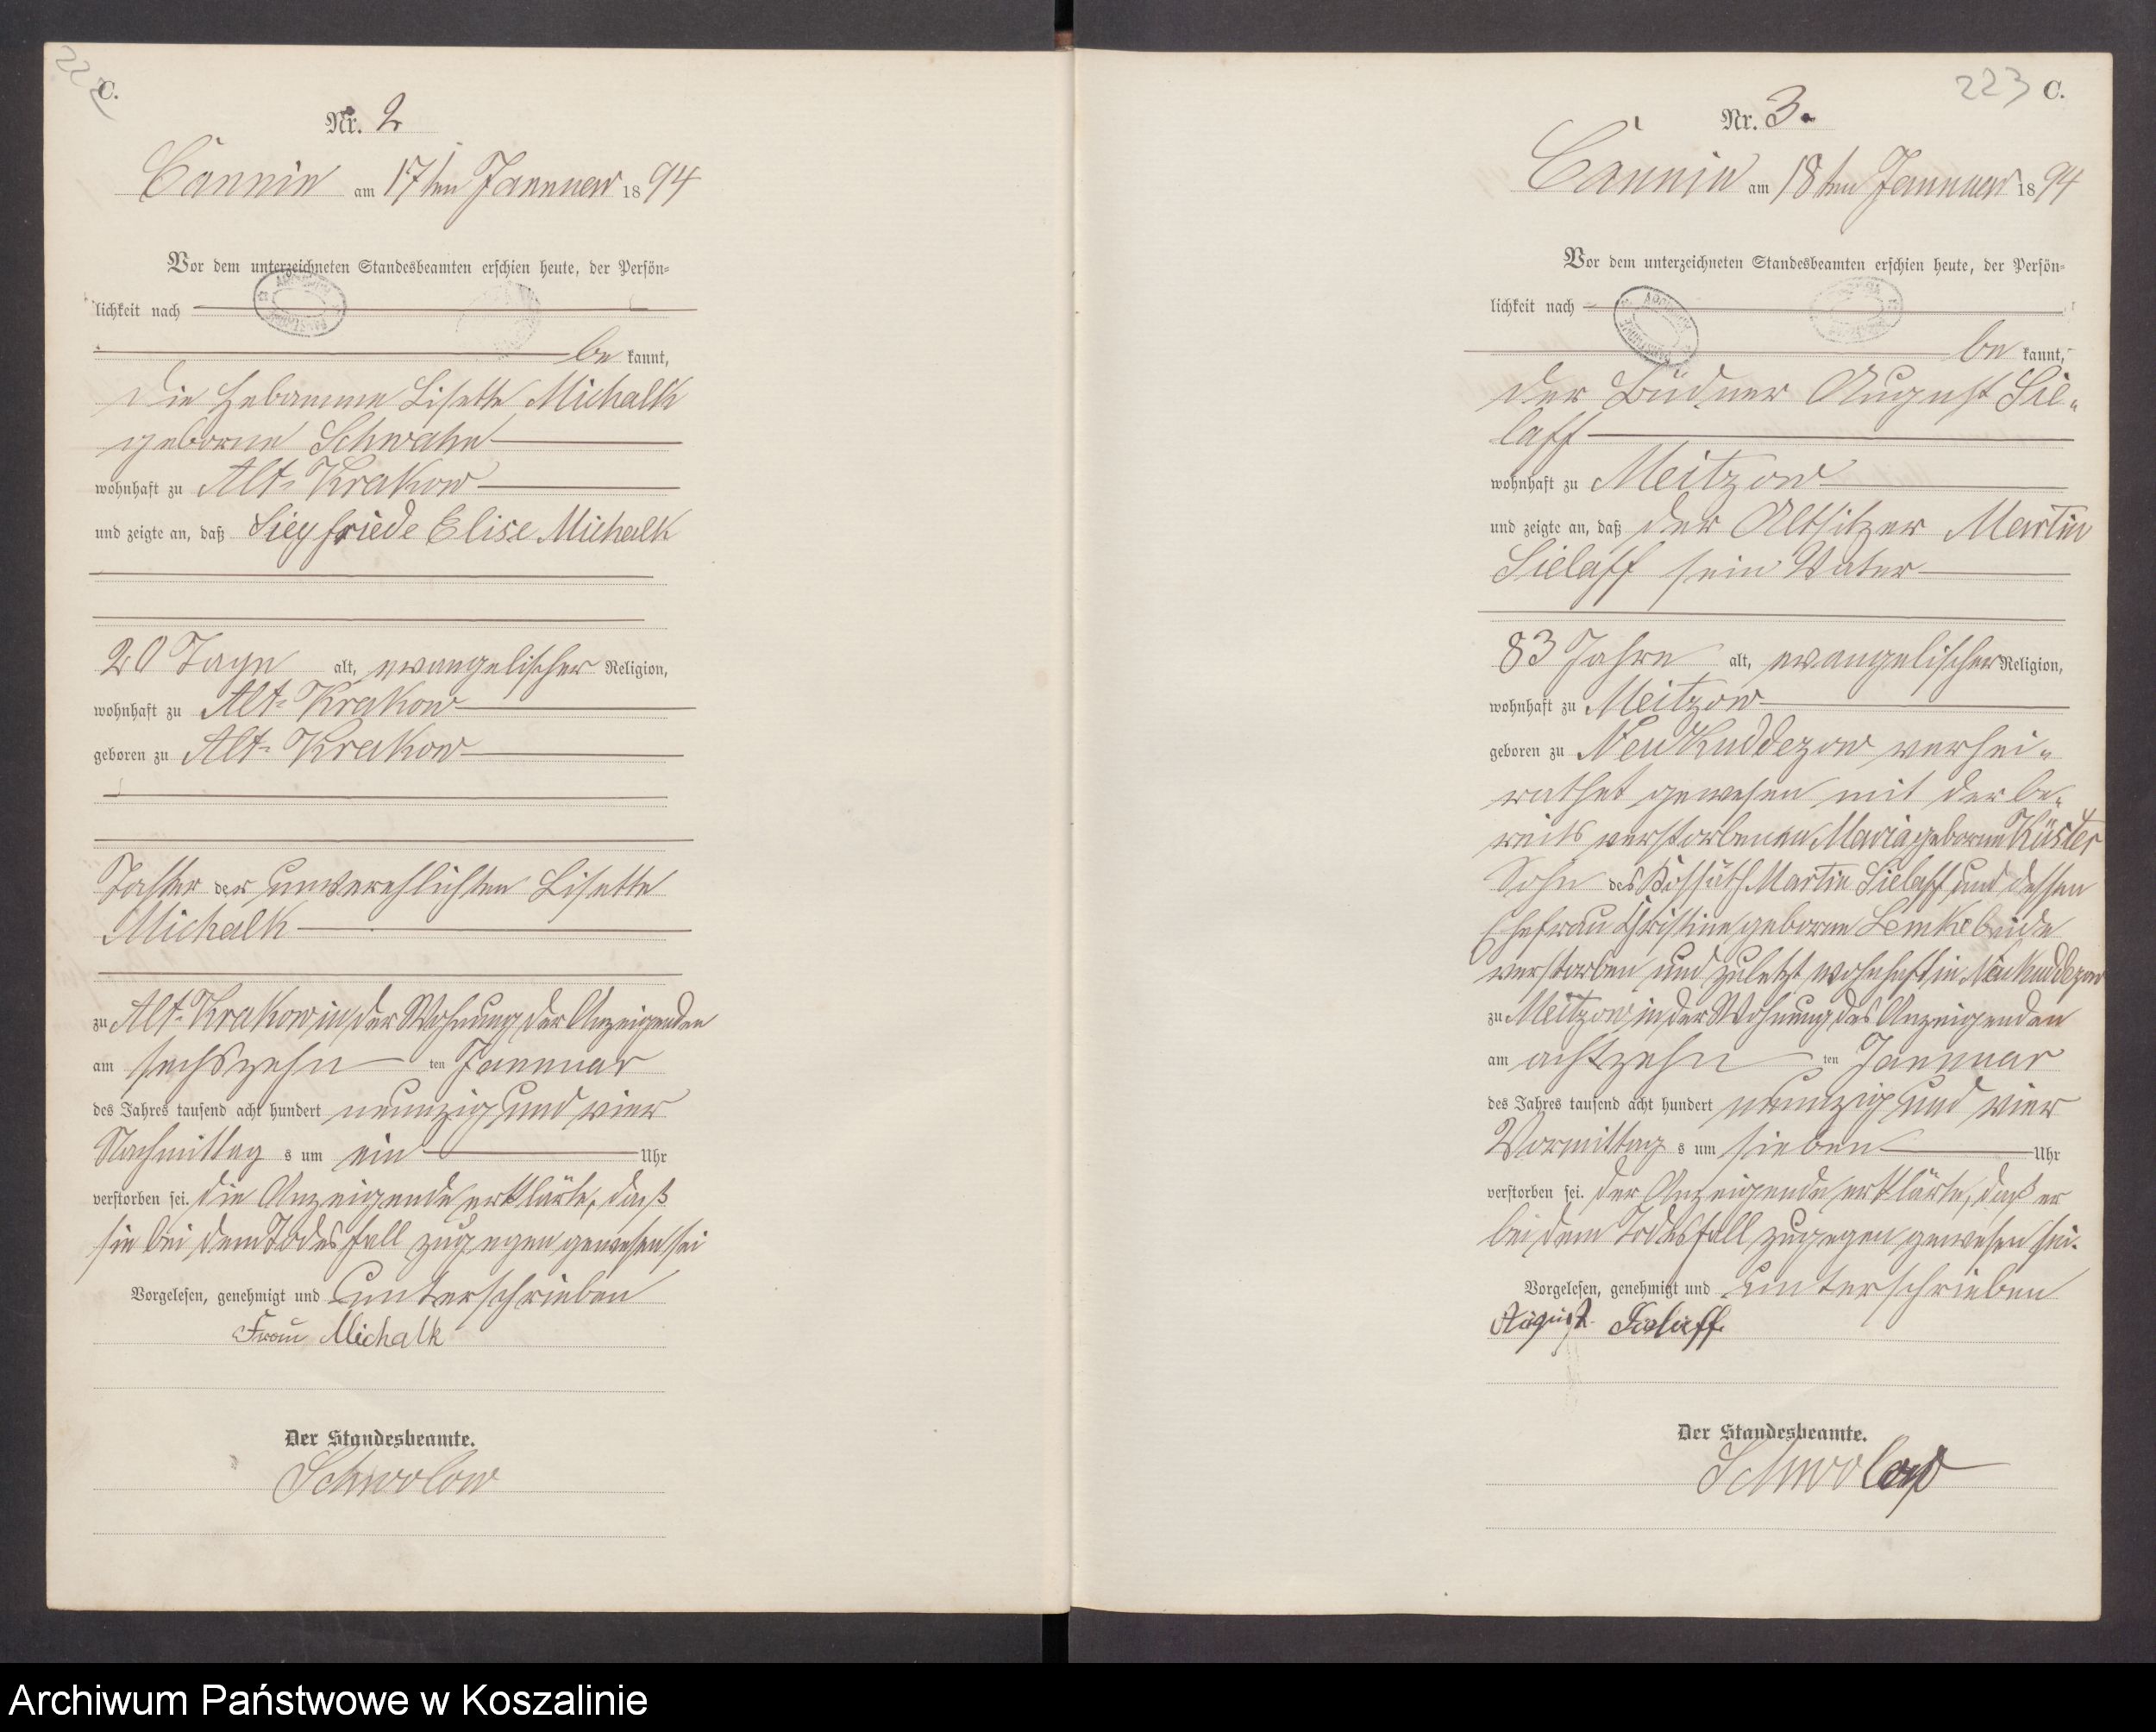 C.
Nr. 2
Cannin am 17ten Januar 1894
Vor dem unterzeichneten Standesbeamten erschien heute, der Persön=
lichkeit nach
be kannt,
die Hebamme Lisette Michalk
geborne Schwahn
wohnhaft zu Alt-Krakow
und zeigte an, daß Siegfriede Elise Michalk
20 Tage alt, evangelischer Religion,
wohnhaft zu Alt-Krakow
geboren zu Alt-Krakow
Tochter der unverehlichten Lisette
Michalk
zu Alt-Krakow in der Wohnung der Anzeigenden
am sechszehn ten Januar
des Jahres tausend acht hundert neunzig und vier
Nachmittag s um ein Uhr
verstorben sei. die Anzeigende erklärte, daß
sie bei dem Todesfall zugegen gewesen sei
Vorgelesen, genehmigt und unterschrieben
Frau Michalk
Der Standesbeamte.
Schwolow
223 C.
Nr. 3.
Cannin am 18ten Januar 1894
Vor dem unterzeichneten Standesbeamten erschien heute, der Persön=
lichkeit nach
be kannt,
der Büdner August Sie-
laff
wohnhaft zu Meitzow
und zeigte an, daß der Altsitzer Martin
Sielaff sein Vater
83 Jahre alt, evangelischer Religion,
wohnhaft zu Meitzow
geboren zu Neu Kuddezow verhei-
rathet gewesen mit der be-
reits verstorbenen Maria geborne Küster
Sohn des Martin Sielaff und dessen
Ehefrau Christine geborne Lemke beide
verstorben und zuletzt wohnhaft in Neu Kuddezow
zu Meitzow in der Wohnung des Anzeigenden
am achtzehn ten Januar
des Jahres tausend acht hundert neunzig und vier
Vormittag s um sieben Uhr
verstorben sei. der Anzeigende erklärte, daß er
bei dem Todesfall zugegen gewesen sei.
Vorgelesen, genehmigt und unterschrieben
August Sielaff
Der Standesbeamte.
Schwolow
Archiwum Państwowe w Koszalinie